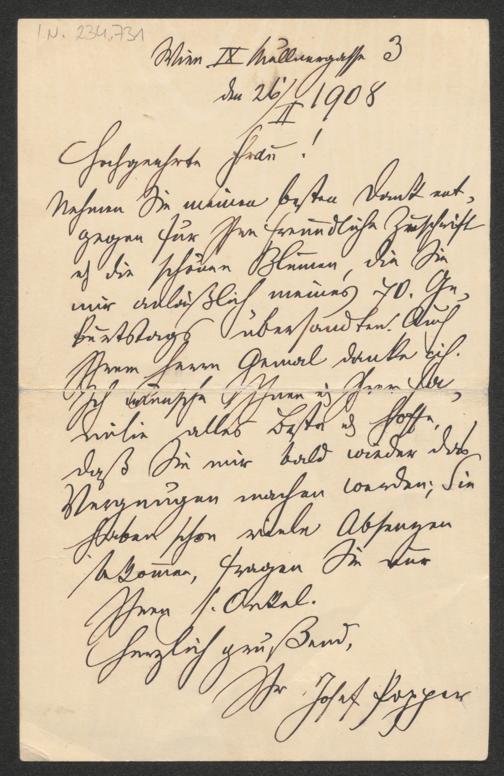 I.N. 234.731
Wien IX Müllnergasse 3
den 26/II 1908
Hochgeehrte Frau!
Nehmen Sie meinen besten Dank ent-
gegen für Ihre freundliche Zuschrift
u die schönen Blumen, die Sie
mir anläßlich meines 70. Ge-
burtstags übersandten. Auch
Ihrem Herrn Gemal danke ich.
Ich wünsche Ihnen u Ihrer Fa-
milie alles Beste u hoffe,
daß Sie mir bald wieder das
Vergnügen machen werden; Sie
haben schon viele Absenzen
bekommen, fragen Sie nur
Ihren l. Onkel.
Herzlich grüßend,
Ihr Josef Popper